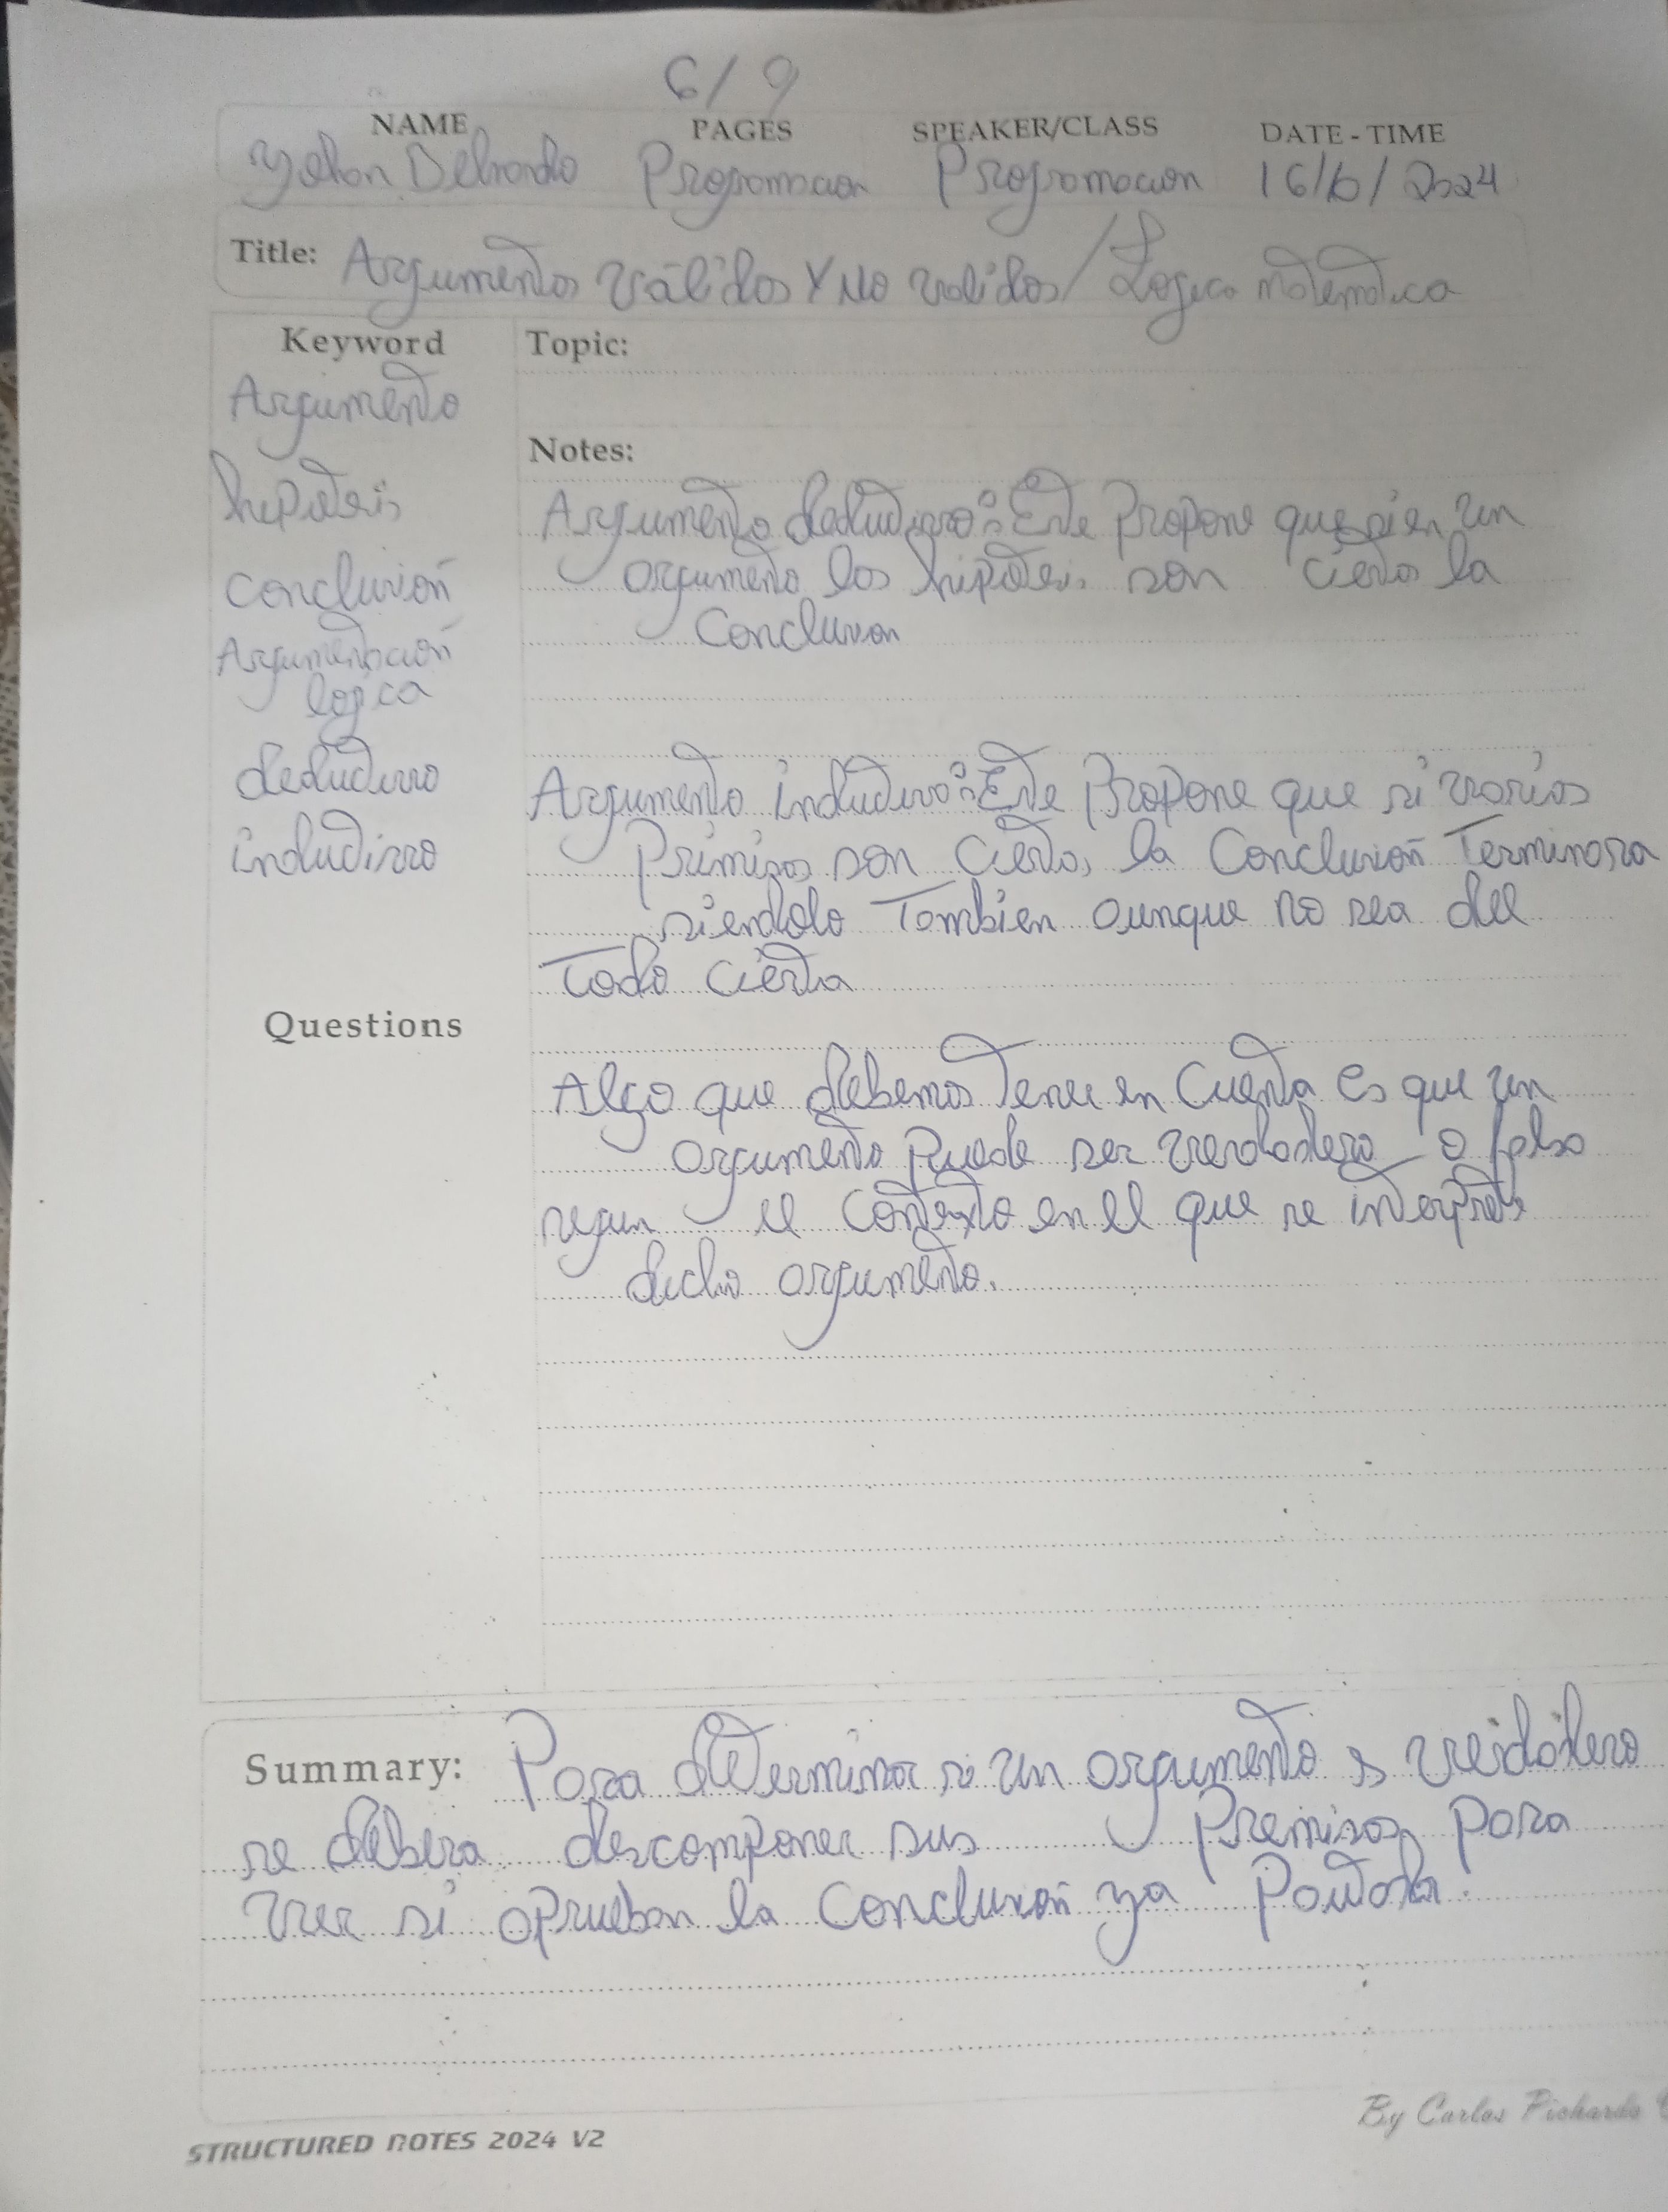 6/9
NAME PAGES SPEAKER/CLASS DATE - TIME
Programacion Programacion 16/6/2024
Title: Argumentos válidos Y No validos / Logica matematica
Keyword
Argumento
hipotesis
conclusión
Argumentación
logica
deductivo
inductivo
Questions
Topic:
Notes:
Argumento deductivo: Este Propone que si en un
argumento las hipotesis son cierta la
Conclusion
Argumento inductivo: Este Propone que si varias
Primisas son cierta, la Conclusión Terminara
siendolo Tambien aunque no sea del
Todo cierta
Algo que debemos Tener en Cuenta es que un
argumento Puede ser verdadero o falso
segun el contexto en el que se interprete
dicho argumento.
Summary: Para determinar si un argumento es verdadero
se debera descomponer sus Premisas Para
ver si aprueban la Conclusión ya
STRUCTURED NOTES 2024 V2
By Carlos Pichardo